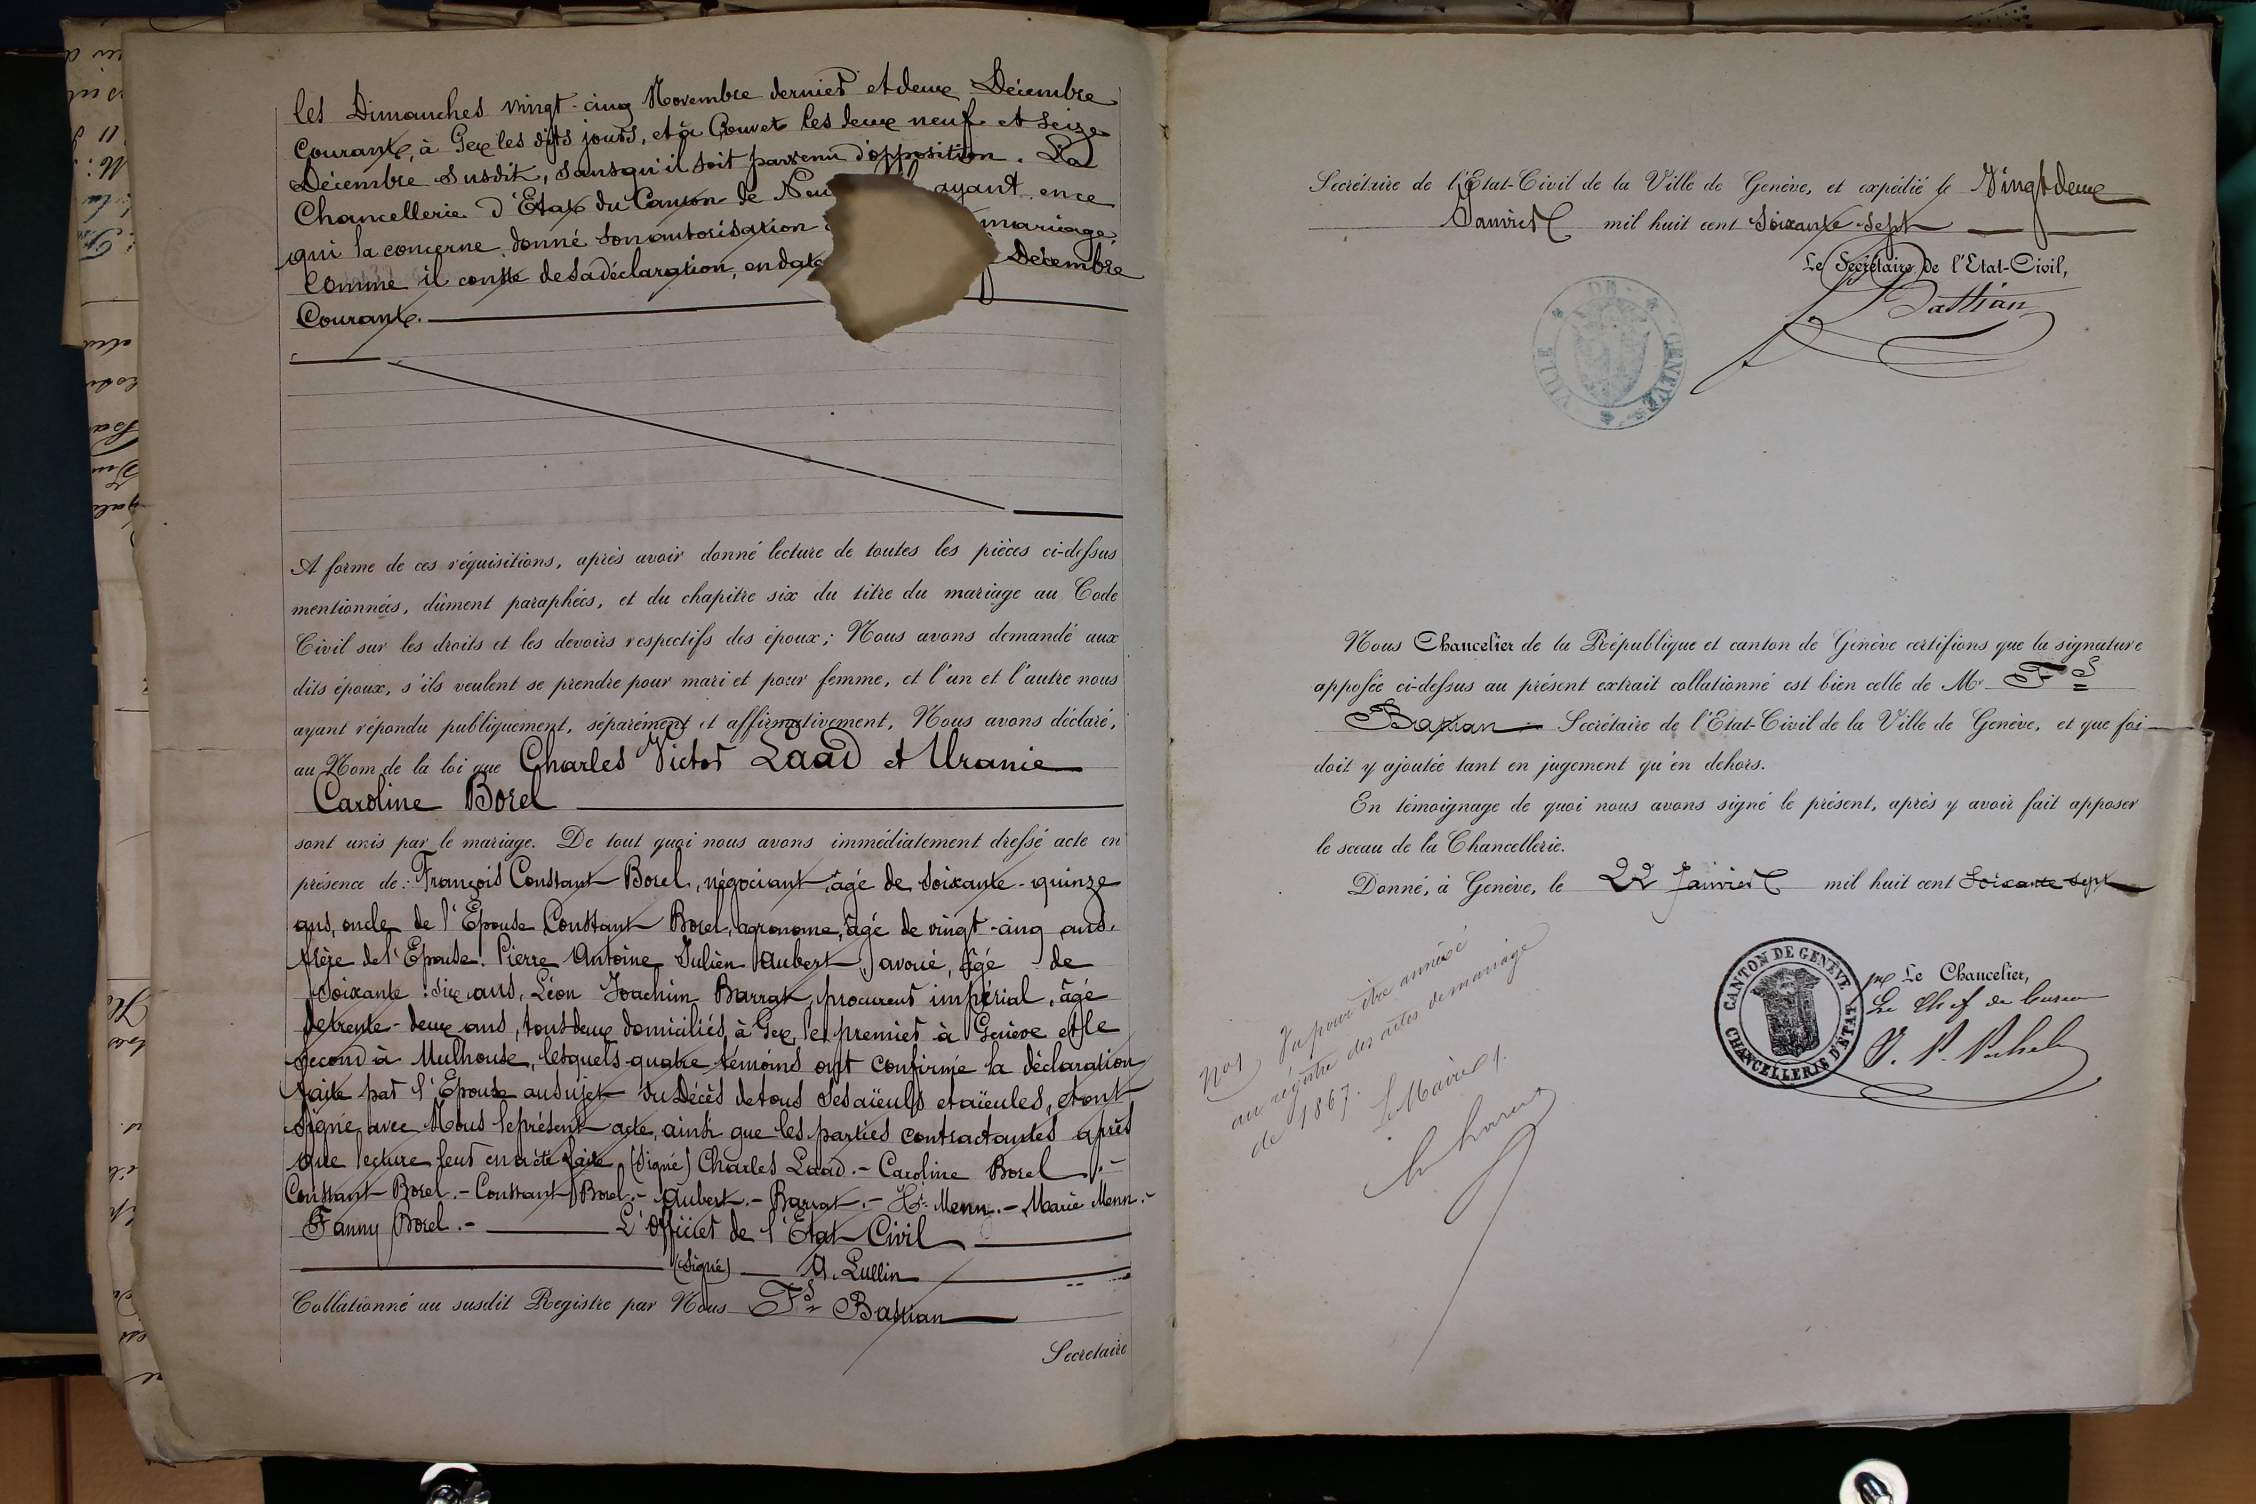 les Dimanches vingt-cinq Novembre dernier et deux Décembre
Courant, à Gex les dits jours, et à Couvet les deux neuf et seize
Décembre susdit, sans qu'il soit parvenu d'opposition. La
Chancellerie d'Etat du Canton de Neu ayant en ce
qui la concerne donné son autorisation mariage,
Comme il conste de sa déclaration, en date Décembre
Courant.
A forme de ces réquisitions, après avoir donné lecture de toutes les pièces ci-dessus
mentionnées, dûment paraphées, et du chapitre six du titre du mariage au Code
Civil sur les droits et les devoirs respectifs des époux; Nous avons demandé aux
dits époux, s'ils veulent se prendre pour mari et pour femme, et l'un et l'autre nous
ayant répondu publiquement, séparément et affirmativement, Nous avons déclaré,
au Nom de la loi que Charles Victor Laad et Uranie
Caroline Borel
sont unis par le mariage. De tout quoi nous avons immédiatement dressé acte en
présence de: François Constant Borel, négociant, âgé de soixante-quinze
ans, oncle de l'Epouse Constant Borel, agronome, âgé de vingt-cinq ans,
frère de l'Epouse. Pierre Antoine Julien Aubert, avoué, âgé de
soixante six ans, Léon Joachim Barrat, procureur impérial, âgé
de trente-deux ans, tous deux domiciliés à Gex, les premiers à Genève et le
second à Mulhouse, lesquels quatre témoins ont confirmé la déclaration
faite par l'Epouse au sujet du Décès de tous ses aïeuls et aïeules, et ont
signé avec Nous le présent acte, ainsi que les parties contractantes après
que lecture leur en a été faite (signé) Charles Laad.- Caroline Borel.-
Constant Borel.- Constant Borel.- Aubert.- Barrat.- Hri Menn.- Marie Menn.-
Fanny Borel.- L'Officier de l'Etat Civil
(signé) A. Lullin
Collationné au susdit Registre par Nous Fs Bastian
Secrétaire
Secrétaire de l'Etat-Civil de la Ville de Genève, et expédié le Vingt deux
Janvier mil huit cent Soixante-sept
Le Secrétaire de l'Etat-Civil,
Bastian
VILLE DE GENEVE
Nous Chancelier de la République et canton de Genève certifions que la signature
apposée ci-dessus au présent extrait collationné est bien celle de Mr Fs
Bastian Secrétaire de l'Etat-Civil de la Ville de Genève, et que foi
doit y ajoutée tant en jugement qu'en dehors.
En témoignage de quoi nous avons signé le présent, après y avoir fait apposer
le sceau de la Chancellerie.
Donné, à Genève, le 22 Janvier mil huit cent soixante sept
CANTON DE GENÈVE
CHANCELLERIE D'ETAT
pr Le Chancelier,
Le Chef de bureau
Vu pour être annexé
au registre des actes de mariage
de 1867.
Le Maire